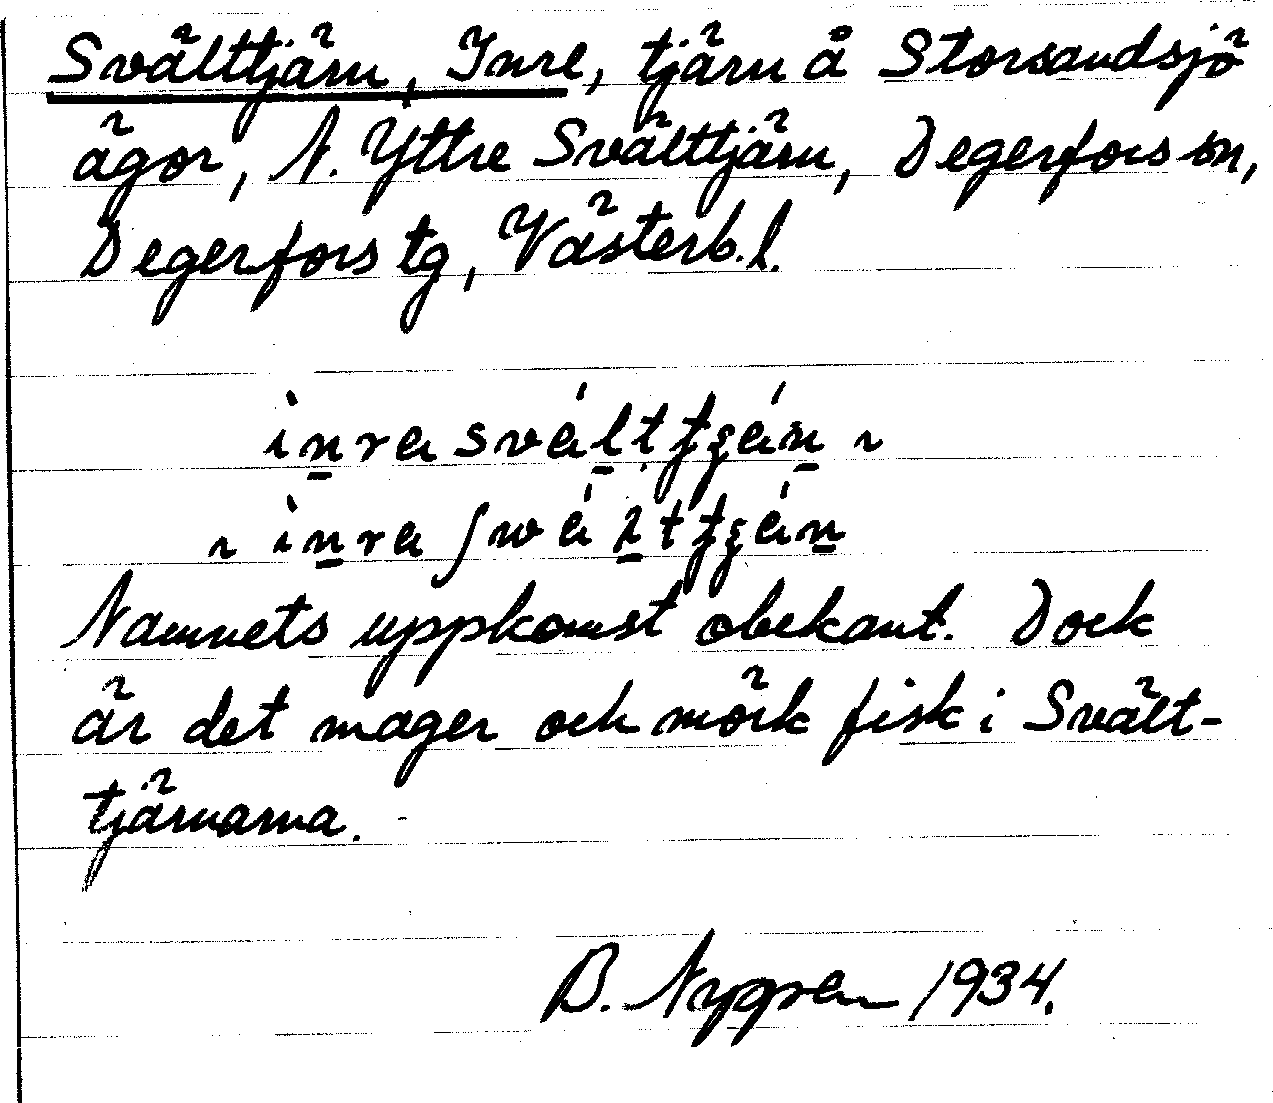 Svälttjärn, Inre, tjärn å Storsandsjö
ägor, N. Yttre Svälttjärn, Degerfors sn,
Degerfors tg, Västerb. l.
Namnets uppkomst obekant. Dock
är det mager och mörk fisk i Svält-
tjärnarna.
B. Nygren 1934.